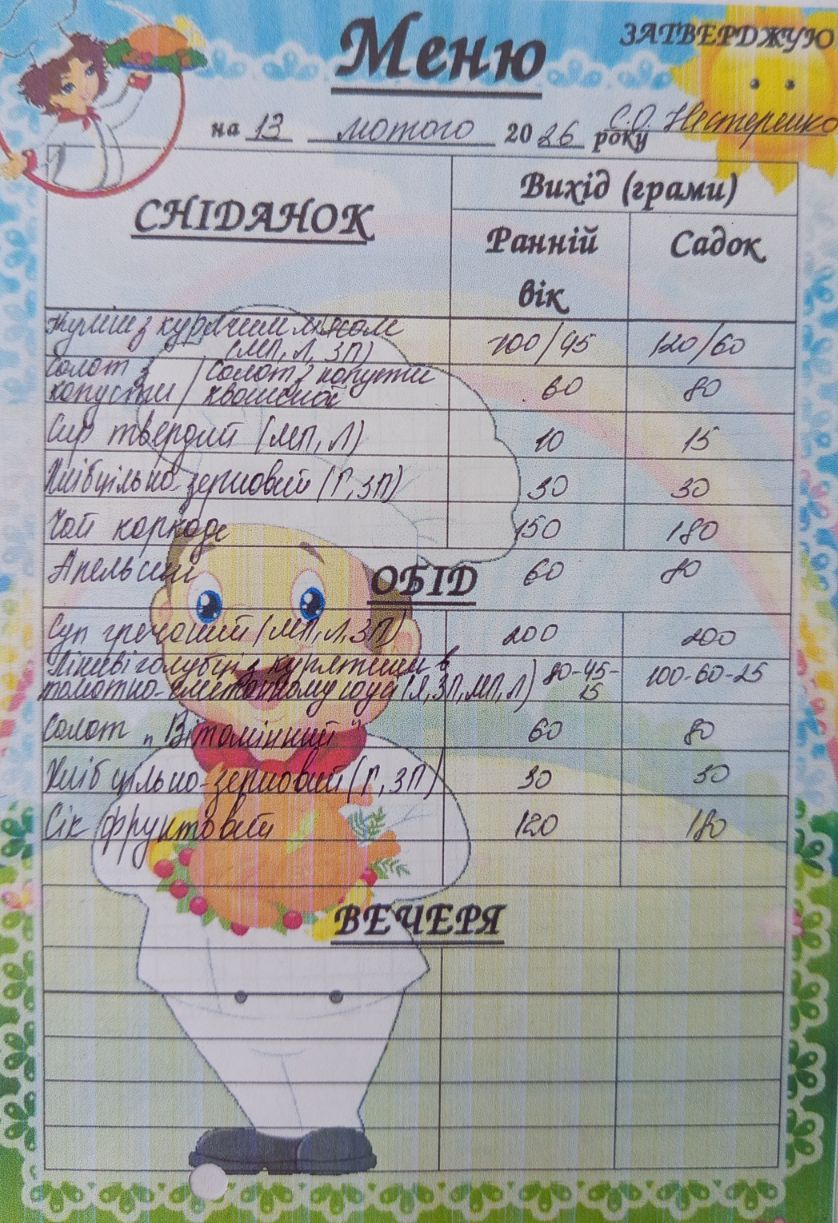 Меню
ЗАТВЕРДЖУЮ
на 13 лютого 2026 року С.О. Нестеренко
СНІДАНОК
Вихід (грами)
Ранній вік
Садок
Куліш з курячим м'ясом (МП, Л, ЗП) 100/45 120/60
Салат з капусти / Салат з капусти квашеної 60 80
Сир твердий (МП, Л) 10 15
Хліб цільно-зерновий (Г, ЗП) 30 30
Чай каркаде 150 180
Апельсин 60 80
ОБІД
Суп гречаний (МП, Л, ЗП) 200 200
Ліниві голубці з курятини в томатно-сметанному соусі ( ЗП, МП, Л) 80-45-15 100-60-25
Салат „Вітамінний" 60 80
Хліб цільно-зерновий (Г, ЗП) 30 50
Сік фруктовий 120 180
ВЕЧЕРЯ